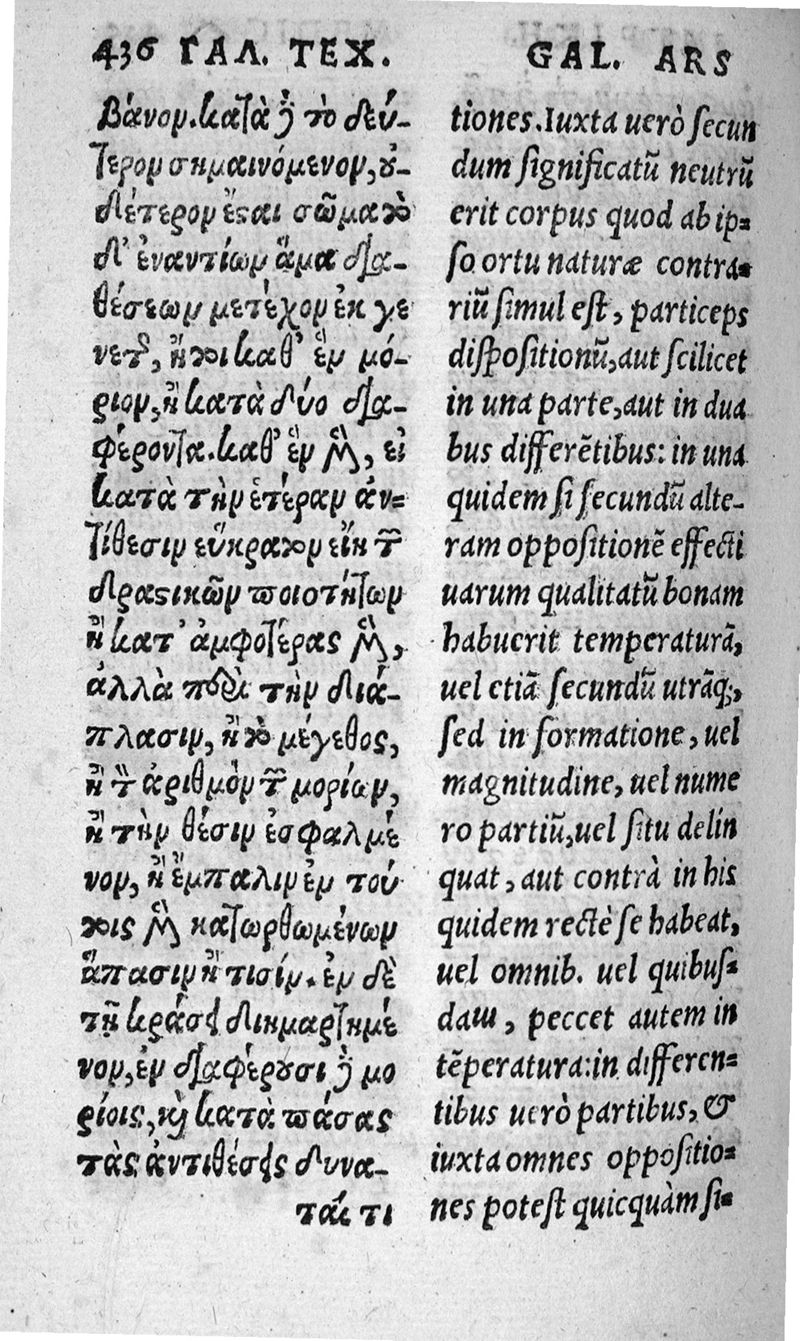 436 ΓΑΛ. ΤΕΧ.
βάνον. κατὰ ȣ̓͂ τὸ δεύ-
τερον σημαινόμενον, ȣ̓-
δέτερον ἔςαι σῶμα τὸ
δ' ἐναντίων ἅμα δια-
θέσεων μετέχον ἐκ γε
νετῆς, ἤτοι καθ' ἓν μό-
ριον, ἢ κατὰ δύο δια-
φέροντα. καθ' ἓν μὲν, εἰ
κατὰ τὴν ἑτέραν ἀν-
τίθεσιν εὔκρατον εἴη τῶν
δραςικῶν ποιοτήτων
ἢ κατ' ἀμφοτέρας μὲν,
ἀλλὰ περὶ τὴν διά-
πλασιν, ἢ τὸ μέγεθος,
ἢ τὸν ἀριθμὸν τῶν μορίων,
ἢ τὴν θέσιν ἐσφαλμέ
νον, ἢ ἔμπαλιν ἐν τού
τοις μὲν κατωρθωμένων
ἅπασιν ἢ τισίν. ἐν δὲ
τῇ κράσει διημαρτημέ
νον, ἐν διαφέρȣσι δὲ μο
ρίοις, καὶ κατὰ πάσας
τὰς ἀντιθέσεις δυνα-
ταί τι
GAL. ARS
tiones. Iuxta uerò secun
dum significatũ neutrũ
erit corpus quod ab ip=
so ortu naturæ contra=
riũ simul est, particeps
dispositionũ, aut scilicet
in una parte, aut in dua
bus differẽtibus: in una
quidem si secundũ alte-
ram oppositionẽ effecti
uarum qualitatũ bonam
habuerit temperaturã,
uel etiã secundũ utrãq;,
sed in formatione, uel
magnitudine, uel nume
ro partiũ, uel situ delin
quat, aut contrà in his
quidem rectè se habeat,
uel omnib. uel quibus=
dam, peccet autem in
tẽperatura: in differen=
tibus uerò partibus, &
iuxta omnes oppositio=
nes potest quicquàm si=